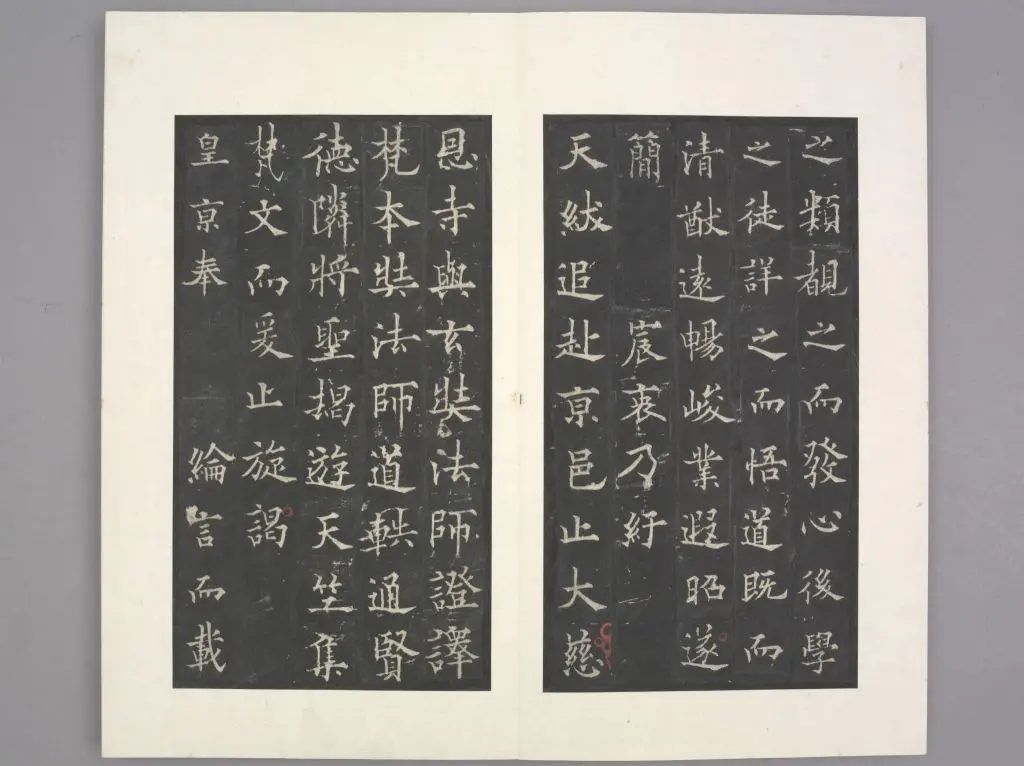 之類覩之而發心後學
之徒詳之而悟道既而
清猷遠暢峻業遐昭遂
簡宸衷乃紆
天紱追赴京邑止大慈
恩寺與玄奘法師證譯
梵本奘法師道軼通賢
德隣將聖揭遊天竺集
梵文而爰止旋謁
皇京奉綸言而載